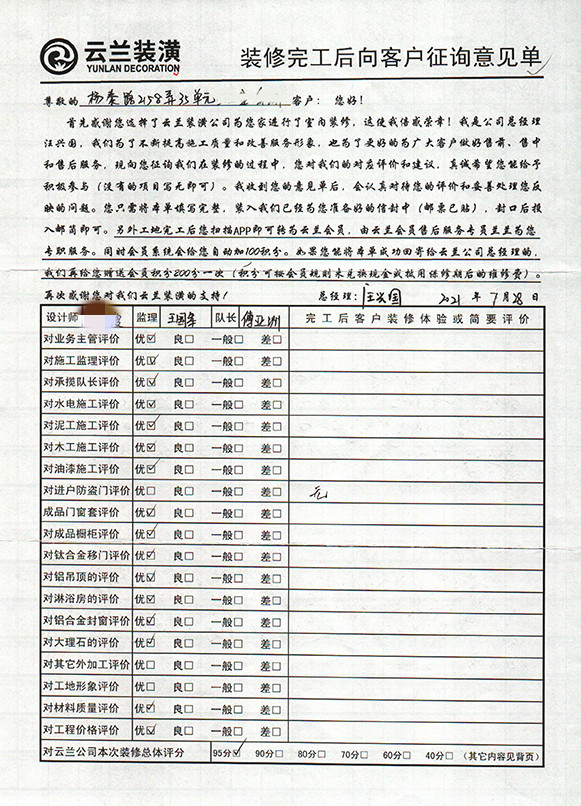 云兰装潢
YUNLAN DECORATION
装修完工后向客户征询意见单
尊敬的 杨泰路2158弄35单元 客户： 您好！
首先感谢您选择了云兰装潢公司为您家进行了室内装修，这使我倍感荣幸！我是公司总经理
汪兴国，我们为了不断提高施工质量和改善服务形象，也为了更好的为广大客户做好售前、售中
和售后服务，现向您征询我们在装修的过程中，您对我们的对应评价和建议，真诚希望您能给予
积极参与（没有的项目写无即可）。我收到您的意见单后，会认真对待您的评价和妥善处理您反
映的问题。您只需将本单填写完整，装入我们已经为您准备好的信封中（邮票已贴），封口后投
入邮筒即可。另外工地完工后您扫描APP即可转为云兰会员，由云兰会员售后服务专员兰兰为您
专职服务。同时会员系统会给您自动加100积分。如果您能将本单成功回寄给云兰公司总经理的，
我们再给您赠送会员积分200分一次（积分可按会员规则未来换现金或抵用保修期后的维修费）。
再次感谢您对我们云兰装潢的支持！ 总经理：汪兴国 2021 年 7月28日
设计师 监理 王国军 队长 傅亚洲 完工后客户装修体验或简要评价
对业务主管评价 优☑ 良□ 一般□ 差□
对施工监理评价 优☑ 良□ 一般□ 差□
对承揽队长评价 优☑ 良□ 一般□ 差□
对水电施工评价 优☑ 良□ 一般□ 差□
对泥工施工评价 优☑ 良□ 一般□ 差□
对木工施工评价 优☑ 良□ 一般□ 差□
对油漆施工评价 优☑ 良□ 一般□ 差□
对进户防盗门评价 优□ 良□ 一般□ 差□ 无
成品门窗套评价 优☑ 良□ 一般□ 差□
对成品橱柜评价 优☑ 良□ 一般□ 差□
对钛合金移门评价 优☑ 良□ 一般□ 差□
对铝吊顶的评价 优☑ 良□ 一般□ 差□
对淋浴房的评价 优☑ 良□ 一般□ 差□
对铝合金封窗评价 优☑ 良□ 一般□ 差□
对大理石的评价 优☑ 良□ 一般□ 差□
对其它外加工评价 优□ 良□ 一般□ 差□
对工地形象评价 优□ 良□ 一般□ 差□
对材料质量评价 优☑ 良□ 一般□ 差□
对工程价格评价 优☑ 良□ 一般□ 差□
对云兰公司本次装修总体评分 95分☑ 90分□ 80分□ 70分□ 60分□ 40分□ （其它内容见背页）